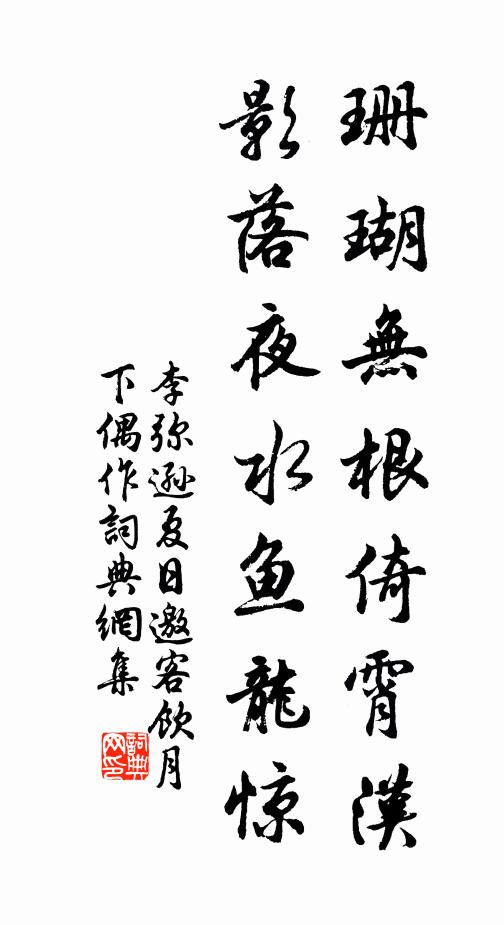 珊瑚無根倚霄漢
影落夜水鱼龍惊
李弥遜夏日邀客飲月
下偶作詞典網集
詞典
网印